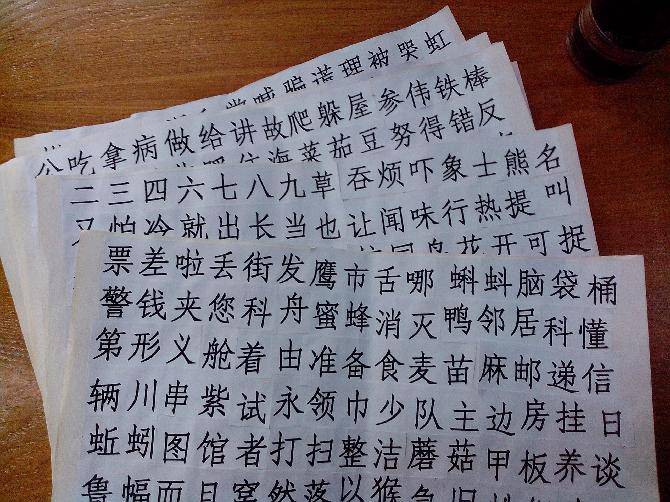 喊骗谎理被哭虹
公吃拿病做给讲故爬躲屋参伟铁棒
海菜茄豆努得错反
二三四六七八九草吞烦吓象士熊名
又怕冷就出长当也让闻味行热提叫
花开可捉
票差啦丢街发鹰市舌哪蝌蚪脑袋桶
警钱夹您科舟蜜蜂消灭鸭邻居科懂
第形义舱着由准备食麦苗麻邮递信
辆川串紫试永领巾少队主边房挂日
蚯蚓图馆者打扫整洁蘑菇甲板养谈
鲁幅而且窝然落以猴急旧